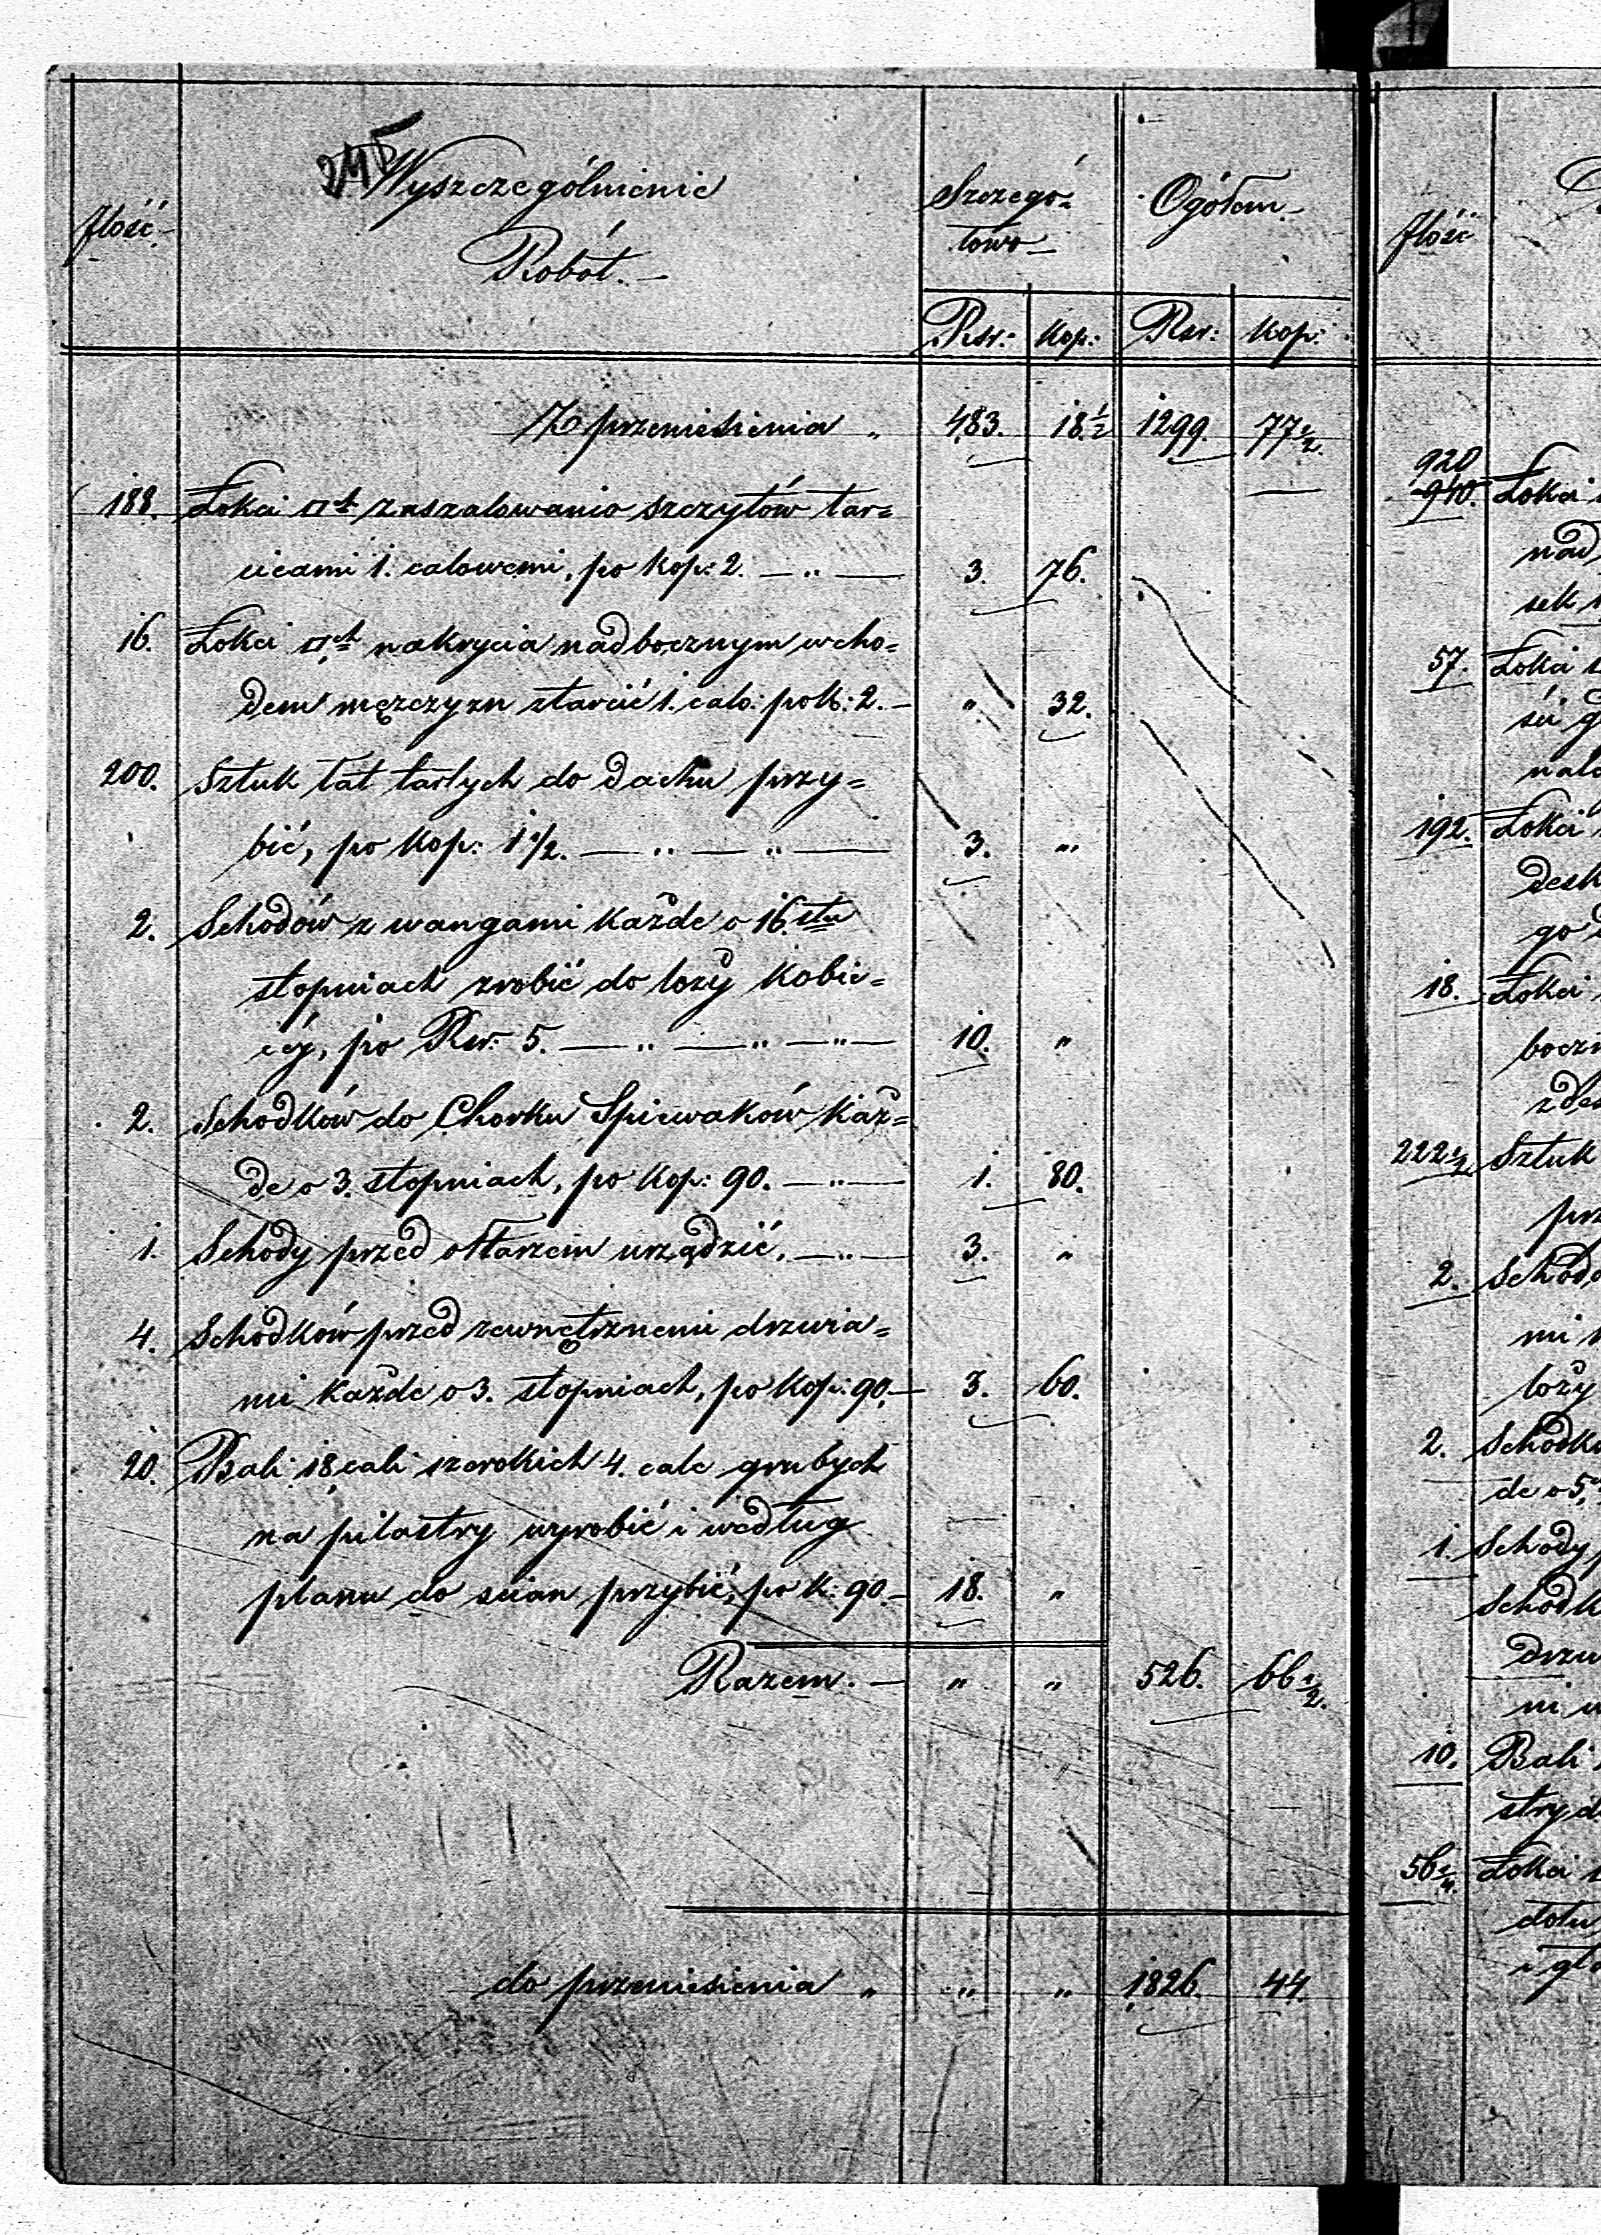 245
Wyszczególnienie
Robót.
Ilość.
Szczegó-
łowo
Ogółem
Rsr: Kop: Rsr: Kop:
Z przeniesienia „ 483. 18 1/2 1299. 77 1/2.
188. Łokci □ch zaszalowania szczytów tar=
cicami 1. calowemi, po Kop: 2. — „ — 3. 76.
16. Łokci □ch nakrycia nad bocznym wcho=
dem męzczyzn ztarcić 1. calo: po K: 2. — „ 32.
200. Sztuk łat tartych do dachu przy=
bić, po Kop: 1 1/2. — „ — „ — 3. „
2. Schodów z wangami każde o 16stu
stopniach zrobić do loży Kobie=
céj, po Rsr. 5. — „ — „ — „ — 10. „
2. Schodków do Chorku Spiewaków każ=
de o 3. stopniach, po Kop: 90. — „ — 1. 80.
1. Schody przed ołtarzem urządzić. — „ — 3. „
4. Schodków przed zewnętrznemi drzwia=
mi każde o 3. stopniach, po Kop: 90. — 3. 60.
20. Bali 18 cali szerokich 4. cale grubych
na pilastry wyrobić i według
planu do scian przybić, po K: 90. — 18. „
Razem. — „ „ 526. 66 1/2.
do przeniesienia „ „ „ 1826. 44.
Ilość
920
940. Łokci
nad
sek
57. Łokci
192. Łokci
desk
go
18. Łokci
boczn
222 1/2 Sztuk
prz
2. Schodó
mi
loży
2. Schodk
de o 5.
1. Schody
Schodk
drzw
ni
10. Bali
stry d
56 1/4. Łokci
dołu
i gł